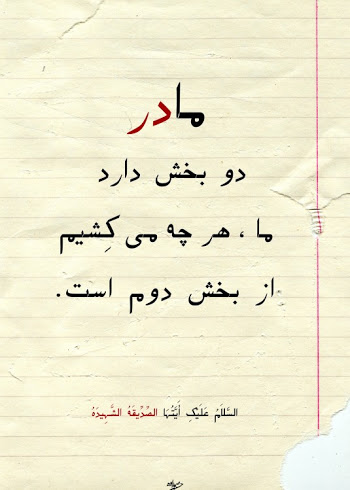 مادر
دو بخش دارد
ما ، هر چه می کِشیم
از بخش دوم است.
السَّلاَمُ عَلَيْكِ أَيَّتُهَا الصِّدِّيقَةُ الشَّهِيدَةُ